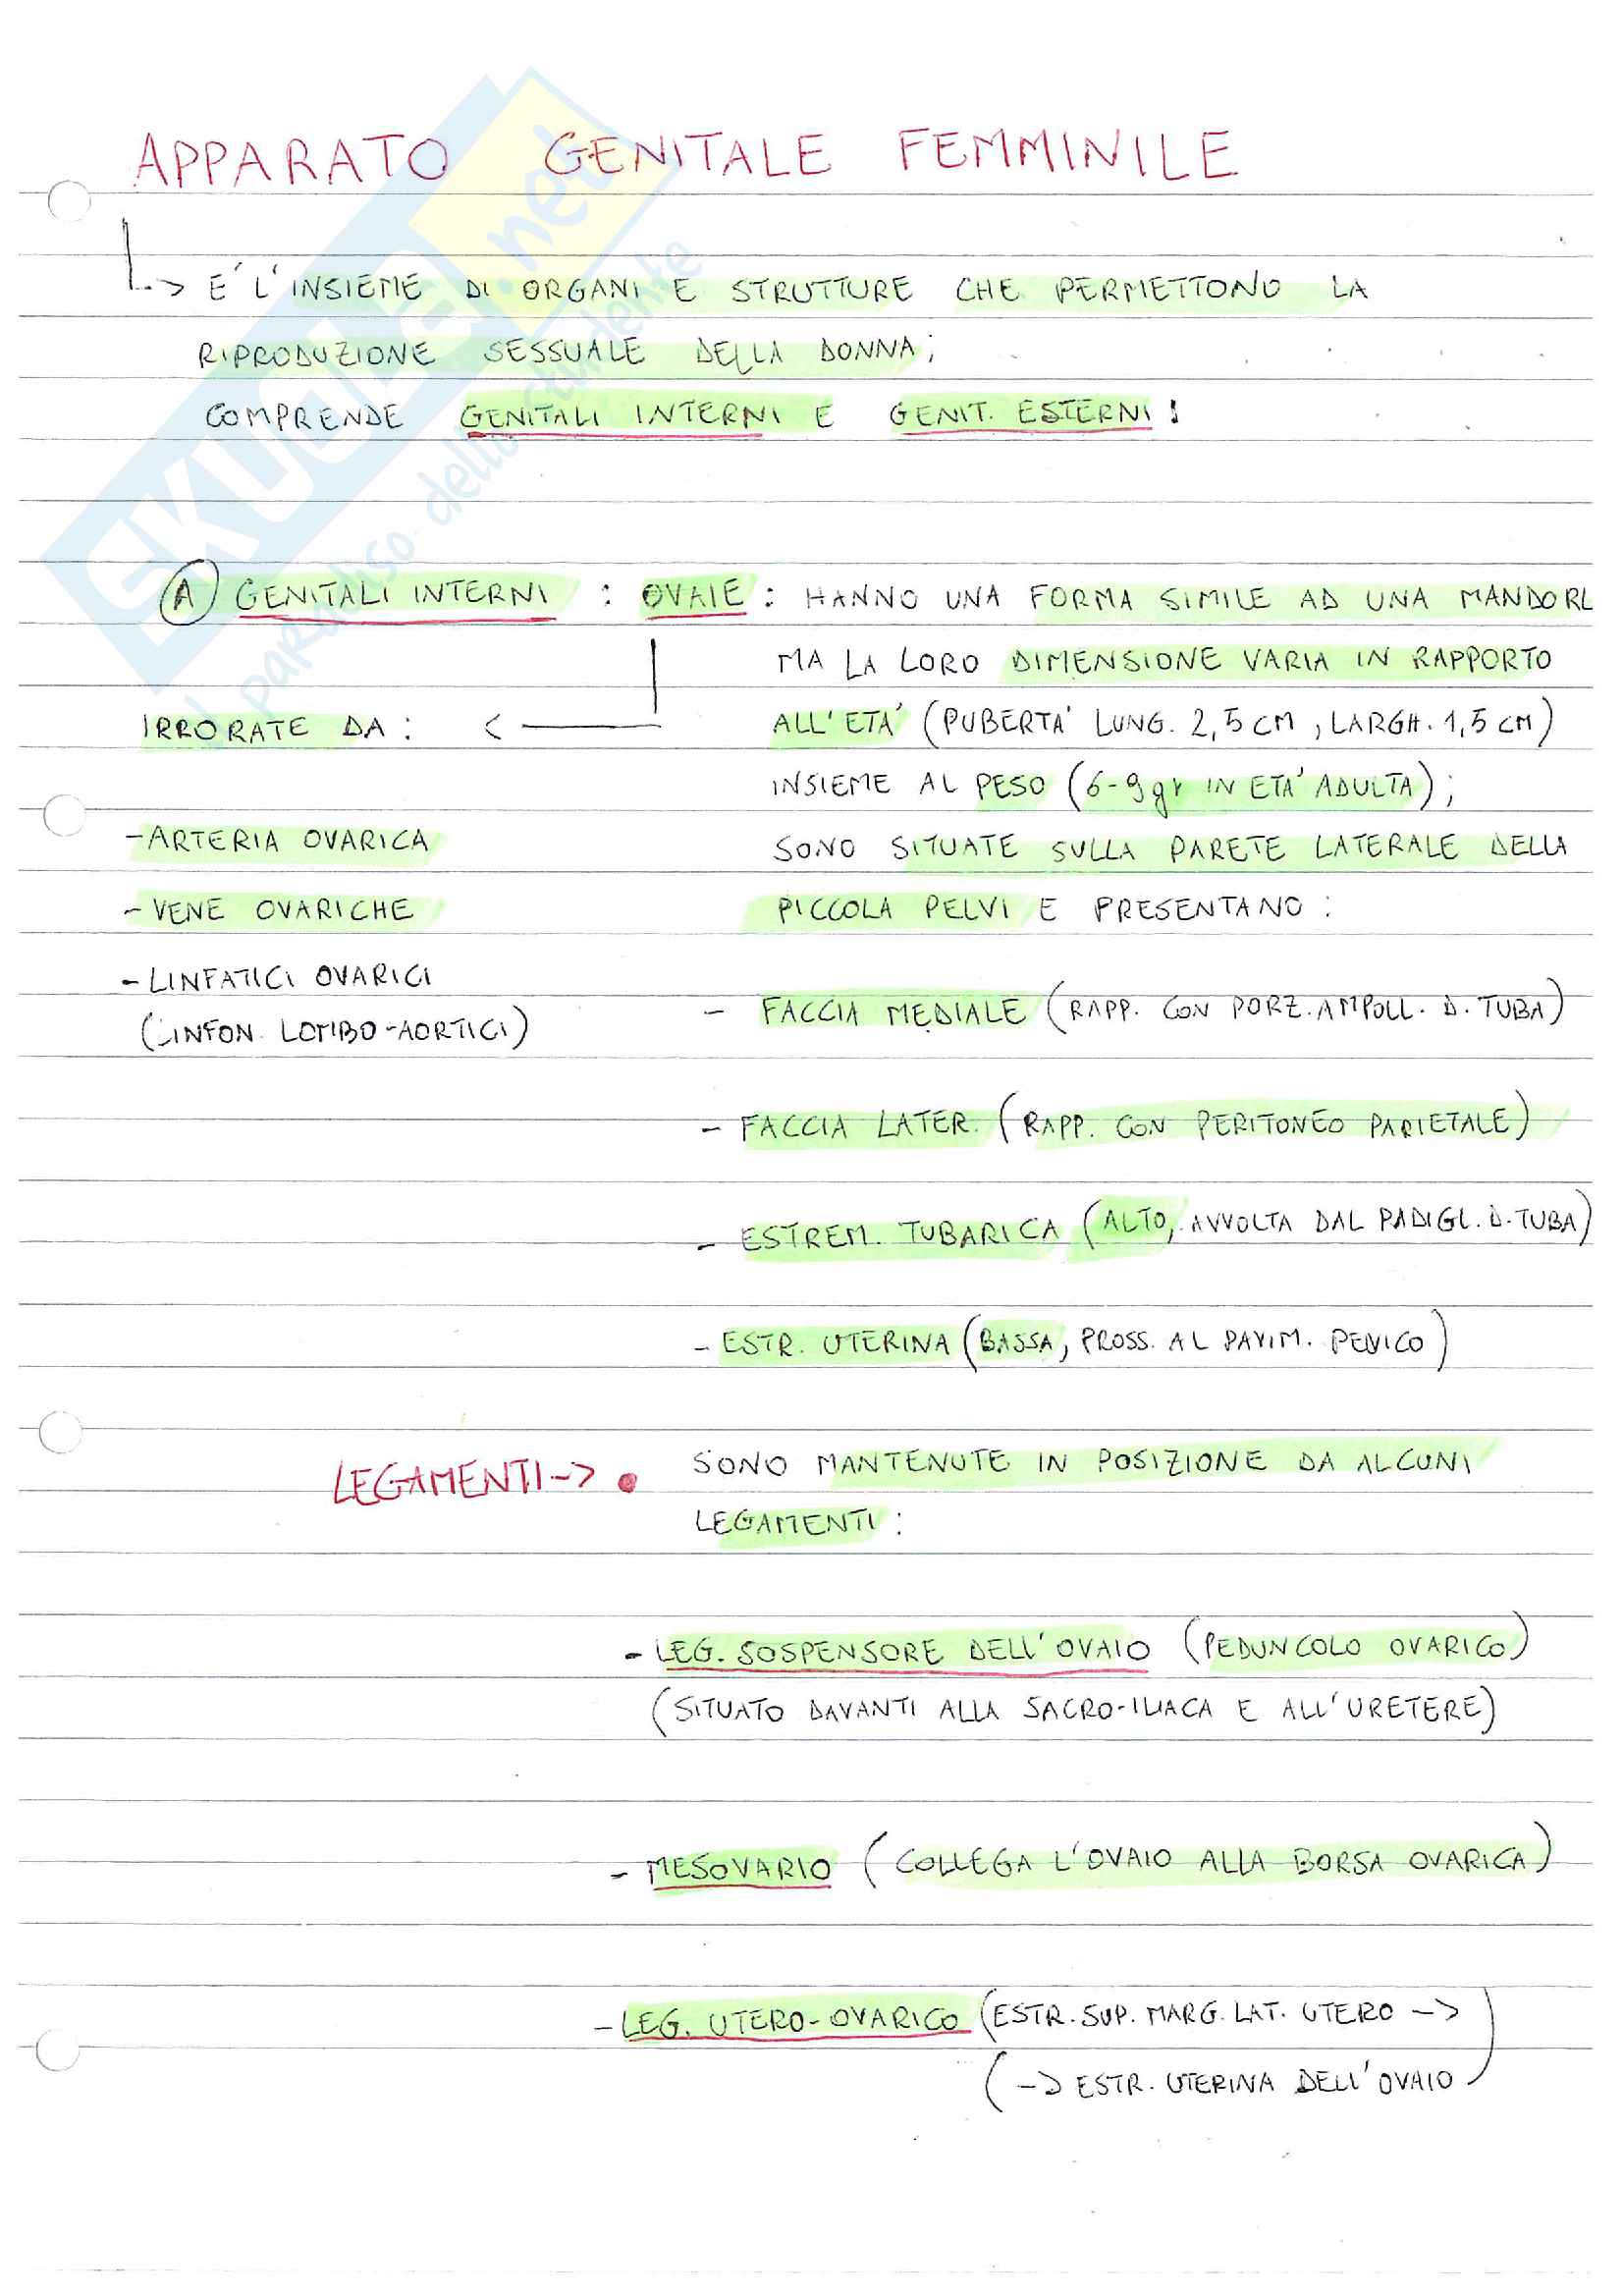 APPARATO GENITALE FEMMINILE
L-> E' L'INSIEME DI ORGANI E STRUTTURE CHE PERMETTONO LA
RIPRODUZIONE SESSUALE DELLA DONNA;
COMPRENDE GENITALI INTERNI E GENIT. ESTERNI:
A GENITALI INTERNI : OVAIE : HANNO UNA FORMA SIMILE AD UNA MANDORL
MA LA LORO DIMENSIONE VARIA IN RAPPORTO
ALL'ETA' (PUBERTA' LUNG. 2,5 CM, LARGH. 1,5 CM)
INSIEME AL PESO (6-9 gr IN ETA' ADULTA);
SONO SITUATE SULLA PARETE LATERALE DELLA
PICCOLA PELVI E PRESENTANO:
- FACCIA MEDIALE (RAPP. CON PORZ. AMPOLL. D. TUBA)
- FACCIA LATER. (RAPP. CON PERITONEO PARIETALE)
- ESTREM. TUBARICA (ALTO, AVVOLTA DAL PADIGL. D. TUBA)
- ESTR. UTERINA (BASSA, PROSS. AL PAVIM. PELVICO)
IRRORATE DA: <
- ARTERIA OVARICA
- VENE OVARICHE
- LINFATICI OVARICI
(LINFON. LOMBO-AORTICI)
LEGAMENTI -> • SONO MANTENUTE IN POSIZIONE DA ALCUNI
LEGAMENTI:
- LEG. SOSPENSORE DELL'OVAIO (PEDUNCOLO OVARICO)
(SITUATO DAVANTI ALLA SACRO-ILIACA E ALL'URETERE)
- MESOVARIO (COLLEGA L'OVAIO ALLA BORSA OVARICA)
- LEG. UTERO-OVARICO (ESTR. SUP. MARG. LAT. UTERO ->
(-> ESTR. UTERINA DELL'OVAIO)
SKUOLA.net
il paradiso dello studente